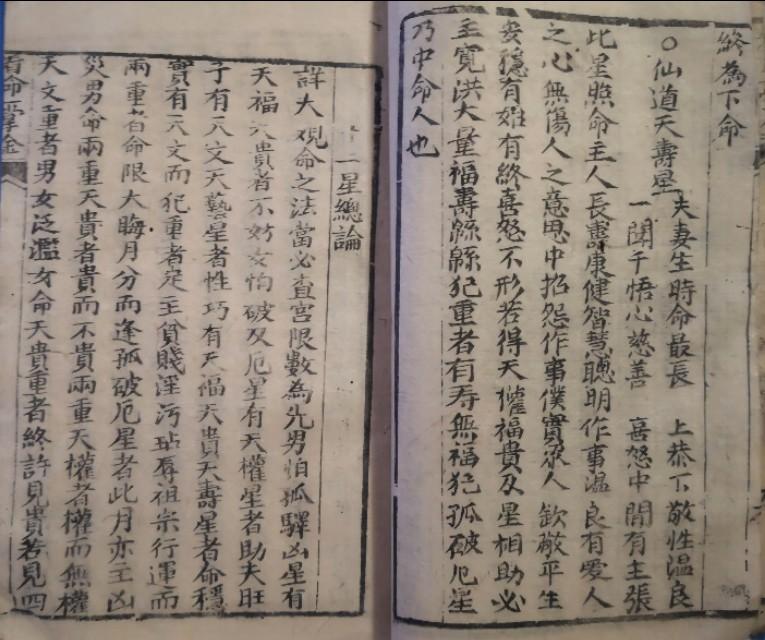 終為下命
○仙道天壽星
夫妻生時命最長 上恭下敬性温良
一聞千悟心慈善 喜怒中間有主張
此星照命主人長壽康健智慧聰明作事温良有愛人
之心無傷人之意思中招怨作事僕實眾人欽敬平生
安穩有始有終喜怒不形若得天權福貴及星相助必
主寬洪大量福壽綿綿犯重者有寿無福犯孤破厄星
乃中命人也
十二星總論
詳大观命之法當必查宮限數為先男怕孤驛凶星有
天福天貴者不妨女怕破及厄星有天權星者助夫旺
子有天文天藝星者性巧有天福天貴天壽星者命穩
實有天文而犯重者定主貧賤淫污玷辱祖宗行運而
兩重者命限大晦月分而逢孤破厄星者此月亦主凶
災男命兩重天貴者貴而不貴兩重天權者權而無權
天文重者男女泛濫女命天貴重者終許見貴若見四